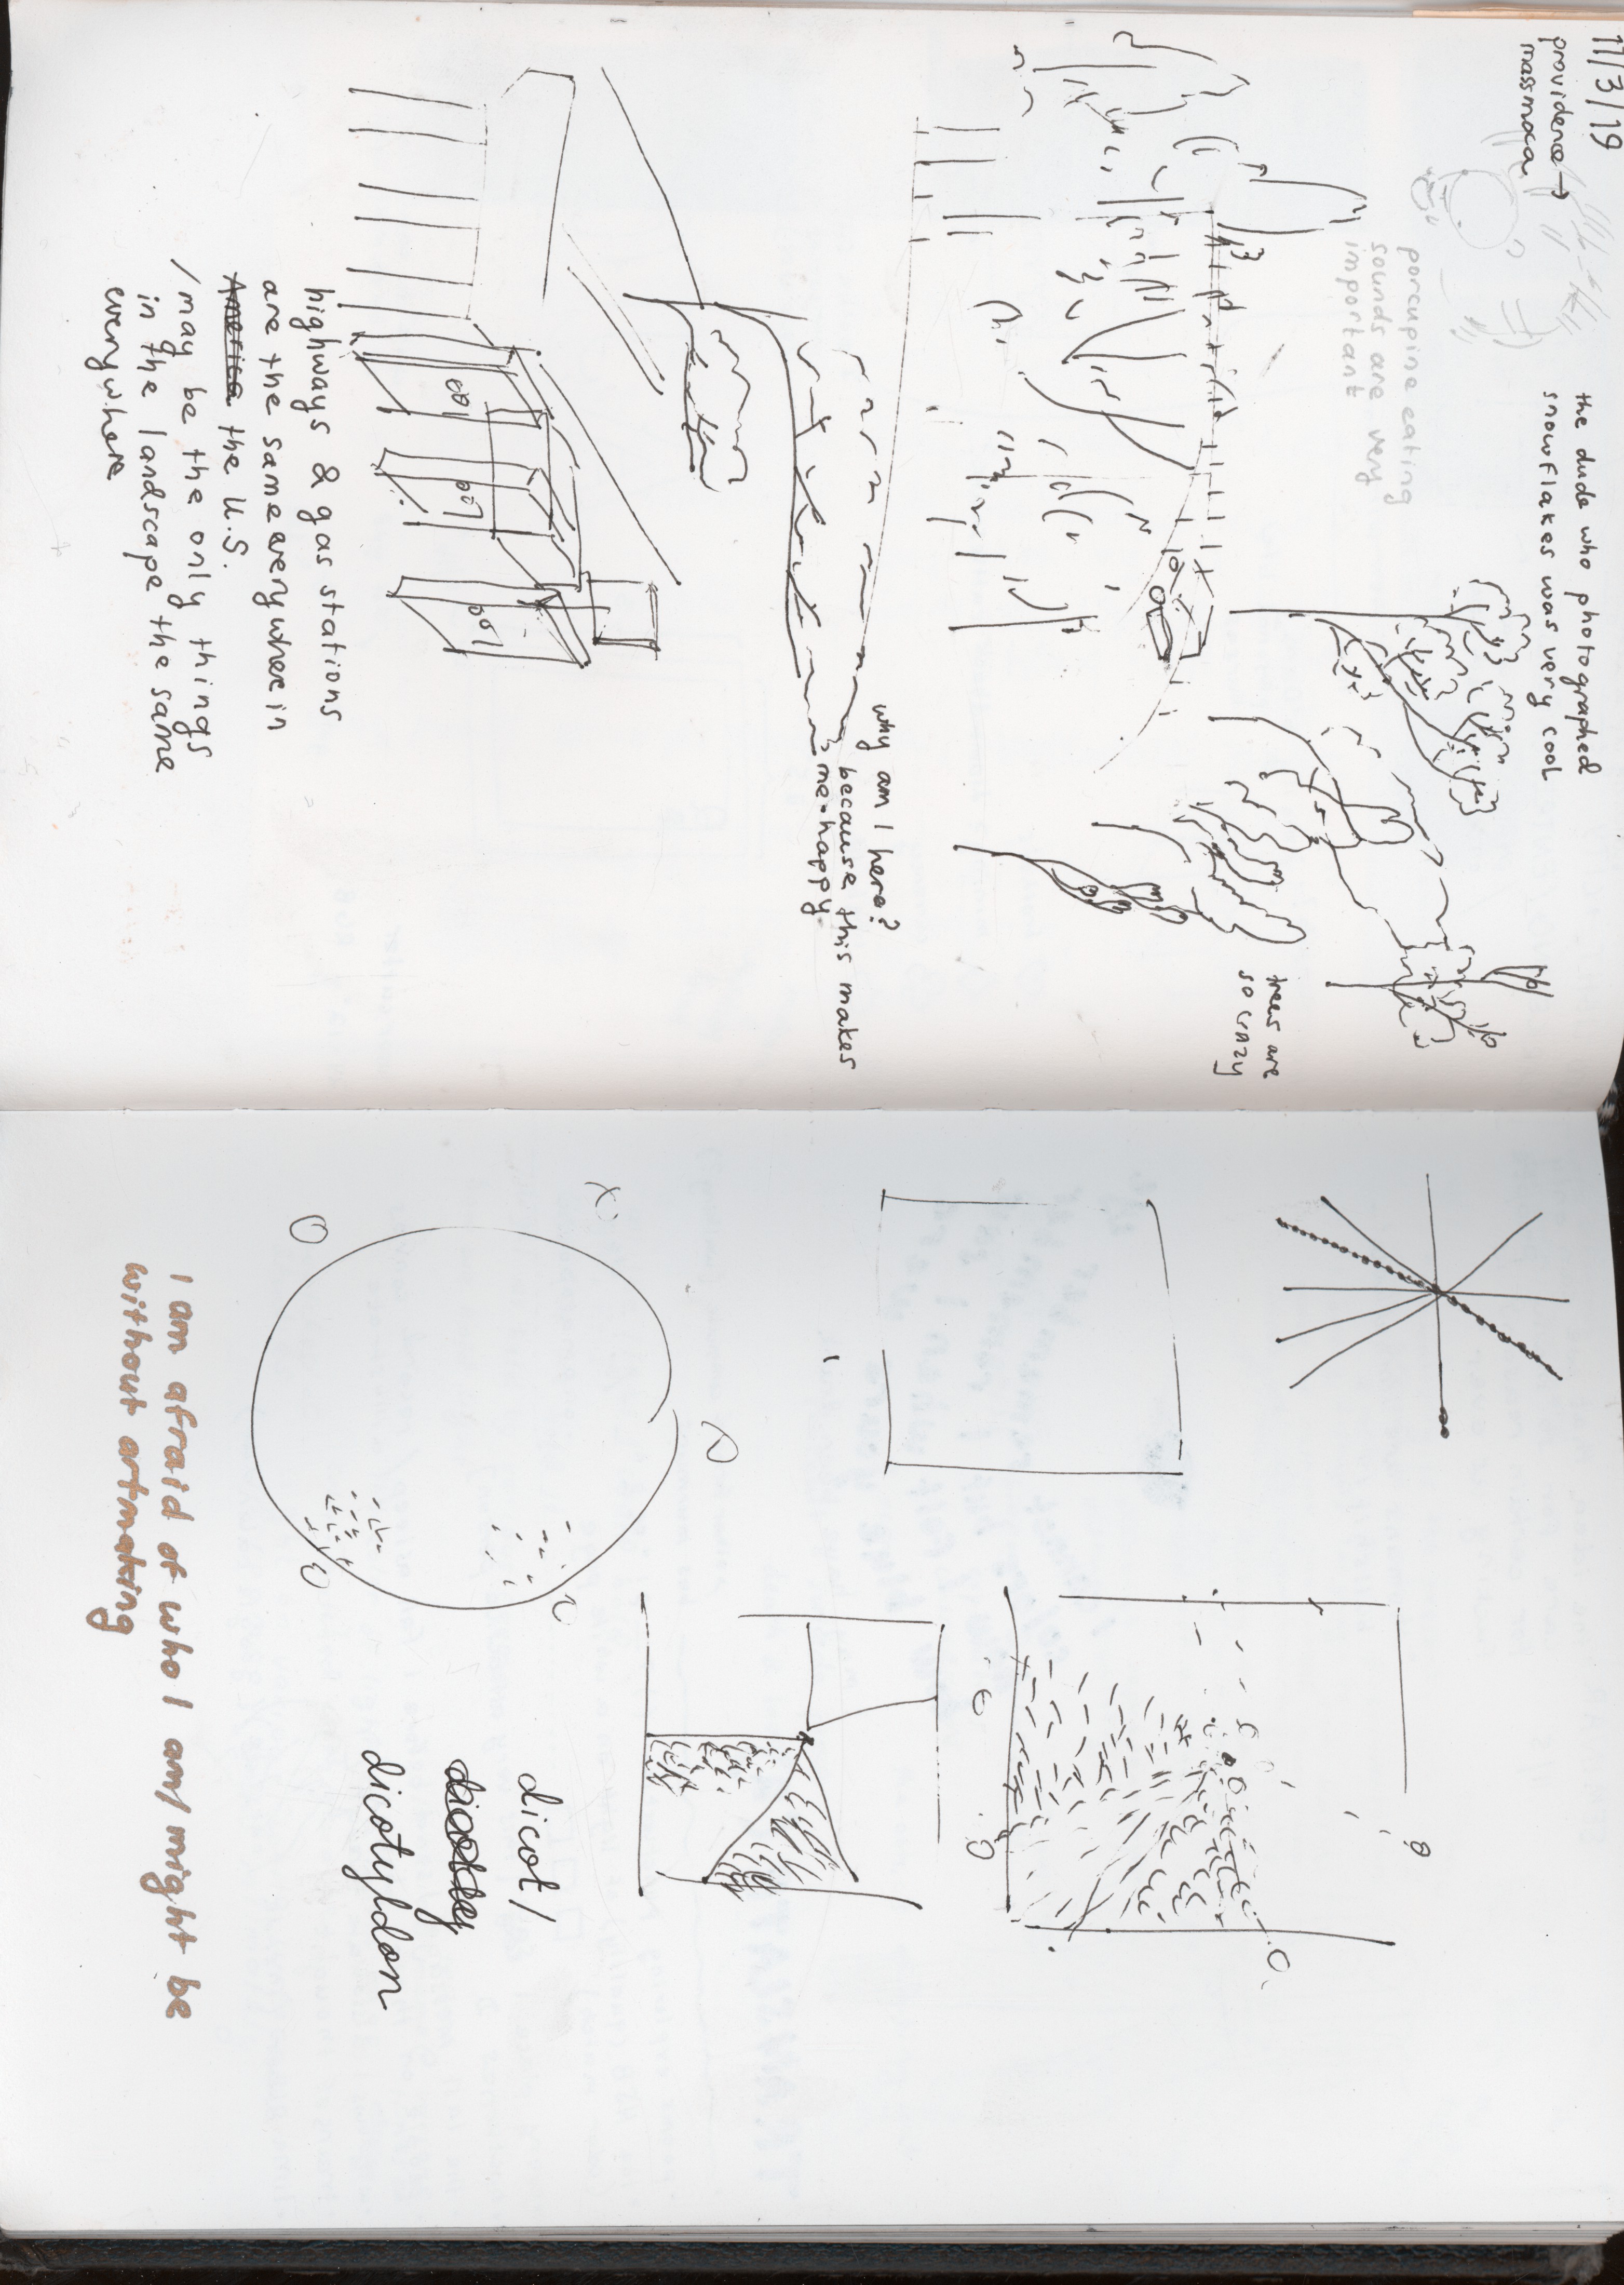 11/3/19
providence →
massmoca
porcupine eating
sounds are very
important
the dude who photographed
snowflakes was very cool
trees are
so crazy
why am I here?
because this makes
me happy.
highways & gas stations
are the same everywhere in
America the U.S.
/ may be the only things
in the landscape the same
everywhere
dicot/
dicotyldon
I am afraid of who I am/might be
without artmaking